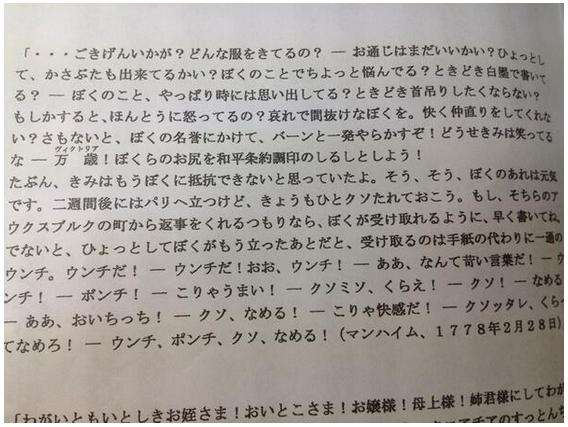 「・・・ごきげんいかが？どんな服をきてるの？ ― お通じはまだいいかい？ひょっとし
て、かさぶたも出来てるかい？ぼくのことでちょっと悩んでる？ときどき白墨で書いて
る？ ― ぼくのこと、やっぱり時には思い出してる？ときどき首吊りしたくならない？
もしかすると、ほんとうに怒ってるの？哀れで間抜けなぼくを。快く仲直りをしてくれな
い？さもないと、ぼくの名誉にかけて、バーンと一発やらかすぞ！どうせきみは笑ってる
ヴィクトリア
な ― 万歳！ぼくらのお尻を和平条約調印のしるしとしよう！
たぶん、きみはもうぼくに抵抗できないと思っていたよ。そう、そう、ぼくのあれは元気
です。二週間後にはパリへ立つけど、きょうもひとクソたれておこう。もし、そちらのア
ウクスブルクの町から返事をくれるつもりなら、ぼくが受け取れるように、早く書いてね。
でないと、ひょっとしてぼくがもう立ったあとだと、受け取るのは手紙の代わりに一通の
ウンチ。ウンチだ！ ― ウンチだ！おお、ウンチ！ ― ああ、なんて苛い言葉だ！ ― ウ
ンチ！ ― ポンチ！ ― こりゃうまい！ ― クソミソ、くらえ！ ― クソ！ ― なめる
― ああ、おいちっち！ ― クソ、なめる！ ― こりゃ快感だ！ ― クソッタレ、くらっ
てなめろ！ ― ウンチ、ポンチ、クソ、なめる！（マンハイム、１７７８年２月２８日）
「わがいともいとしきお姪さま！おいとこさま！お嬢様！母上様！姉君様にしてわが